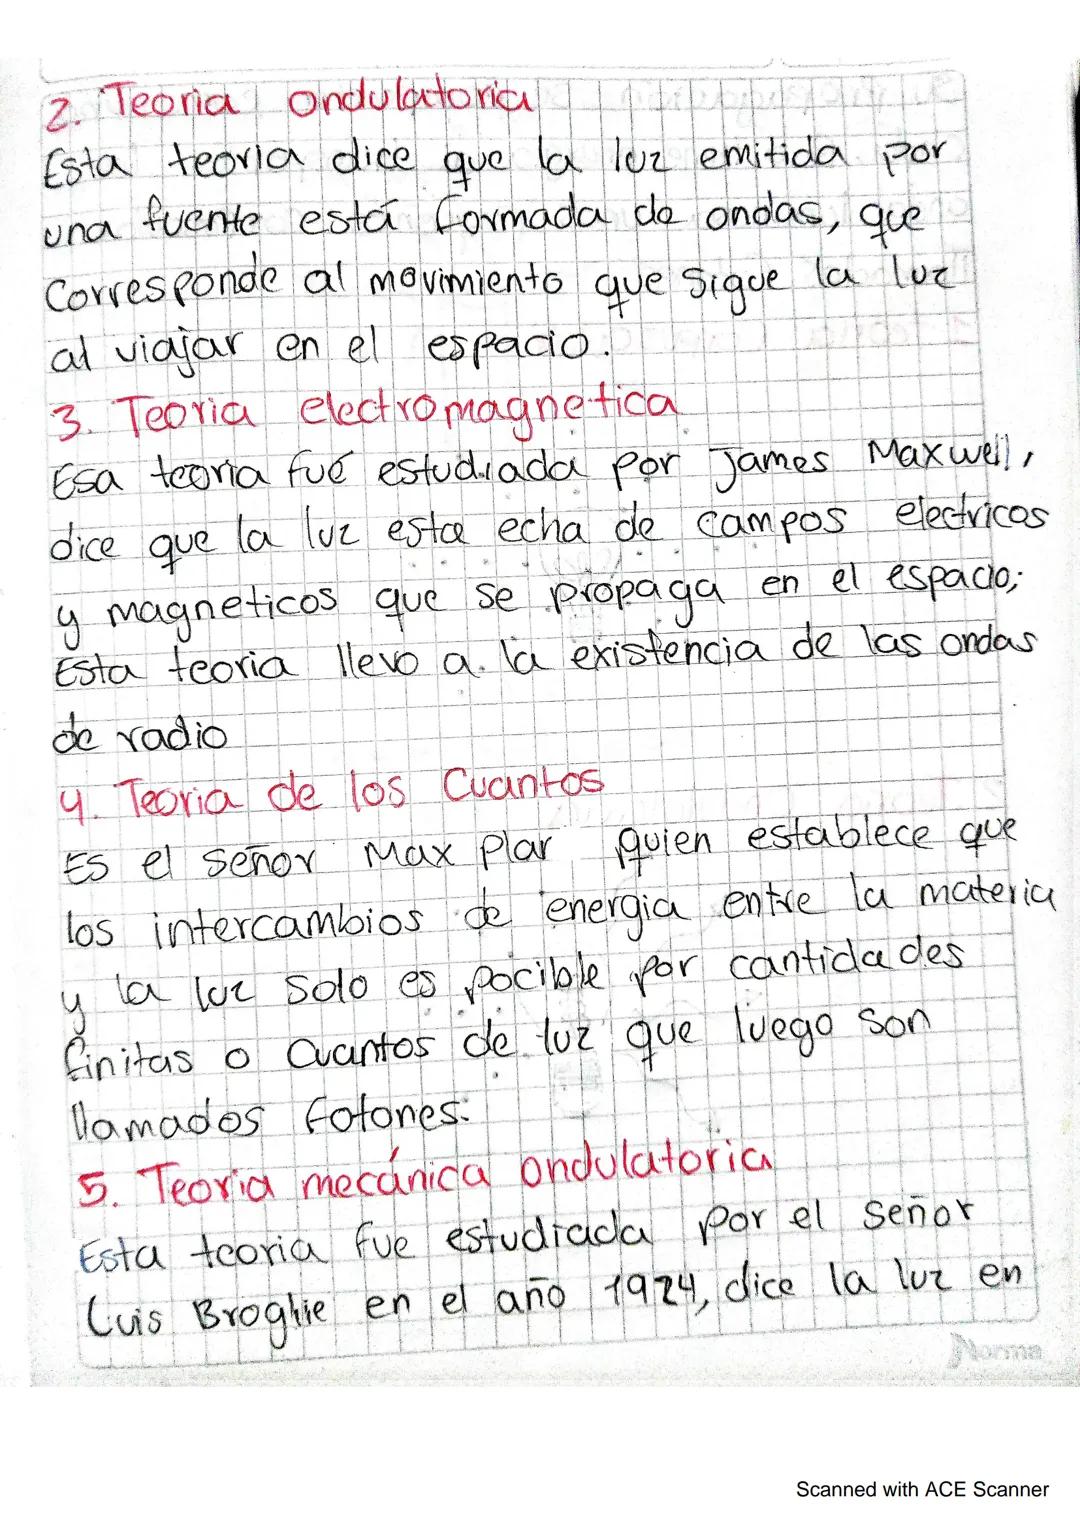 2. Teoria ondulatoria
Esta teoria dice que la luz emitida por
una fuente está formada de ondas, que
Corresponde al movimiento que sigue la luz
al viajar en el espacio.
3. Teoria electromagnetica
Esa teoria fué estudiada por James Maxwell,
dice que la luz esta echa de campos electricos
y magneticos que se propaga en el espacio;
Esta teoria llevo a la existencia de las ondas
de radio
4. Teoria de los Cuantos
Es el señor Max Plar quien establece que
los intercambios de energia entre la materia
y la luz solo es pocible por cantidades
finitas o cuantos de luz que luego son
llamados fotones.
5. Teoria mecánica ondulatoria
Esta teoria fue estudiada por el señor
Luis Broglie en el año 1924, dice la luz en
Norma
Scanned with ACE Scanner